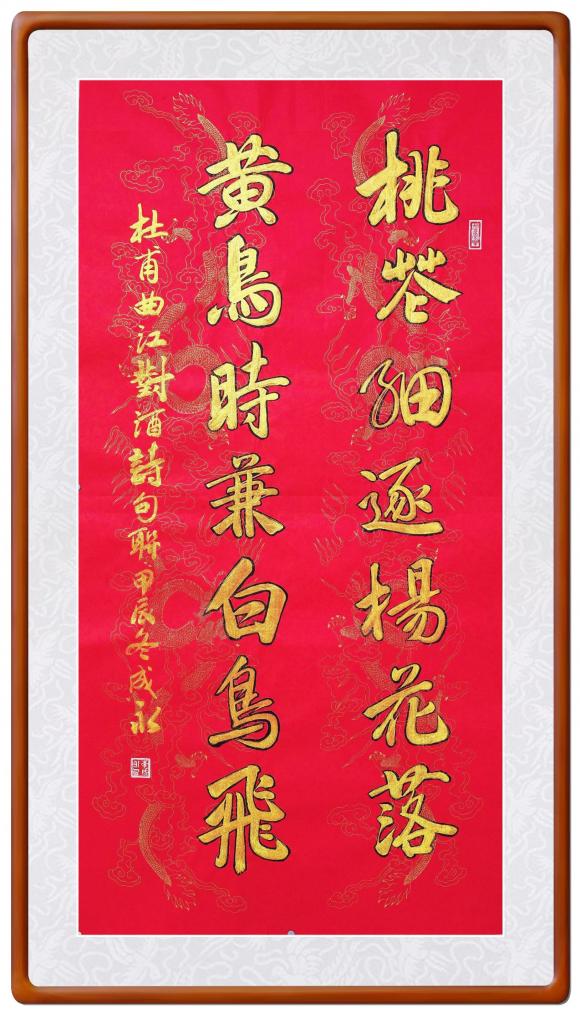 桃花細逐楊花落
黃鳥時兼白鳥飛
杜甫曲江對酒詩句聯甲辰冬成永